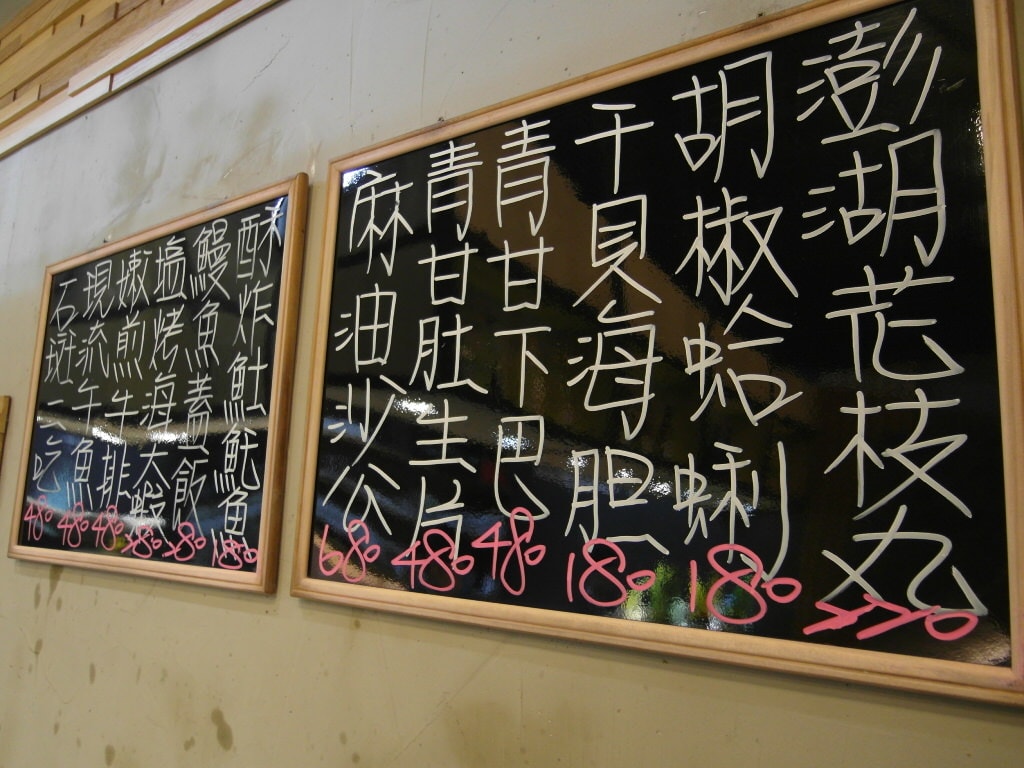 澎湖花枝丸 220
胡椒蛤蜊 180
干貝海胆 180
青甘下巴 480
青甘肚生片 480
麻油沙公 680
酥炸𩵚魠魚 180
鰻魚蓋飯 280
塩烤海大 280
嫩煎牛排 480
現流午魚 480
石斑三吃 480